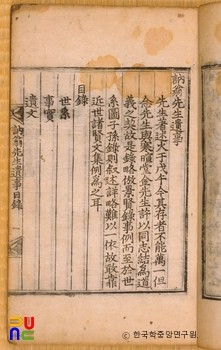 訥翁先生遺事
先生著述火于戊午今其存者不能萬一但
念先生與寒暄堂金先生許以同志結爲道
義之友故是錄略倣景賢錄事例而至於世
系圖子孫錄則叙述詳略難以一依故敢靠
近世諸賢文集例爲之耳
目錄
世系
事實
遺文
訥翁先生遺事目錄
PUNC
© 한국학중앙연구원